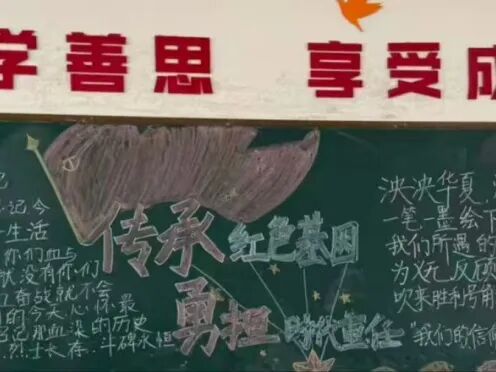 学善思 享受成
传承红色基因
勇担时代重任
记今
生活
你们血与
就没有你们
奋战就不会
的今天心怀最
记那血泪的历史
烈士长存.斗碑永恒
泱泱华夏,
一笔一墨绘下
我们所遇的
为犹
吹来胜利号角
"我们的信仰